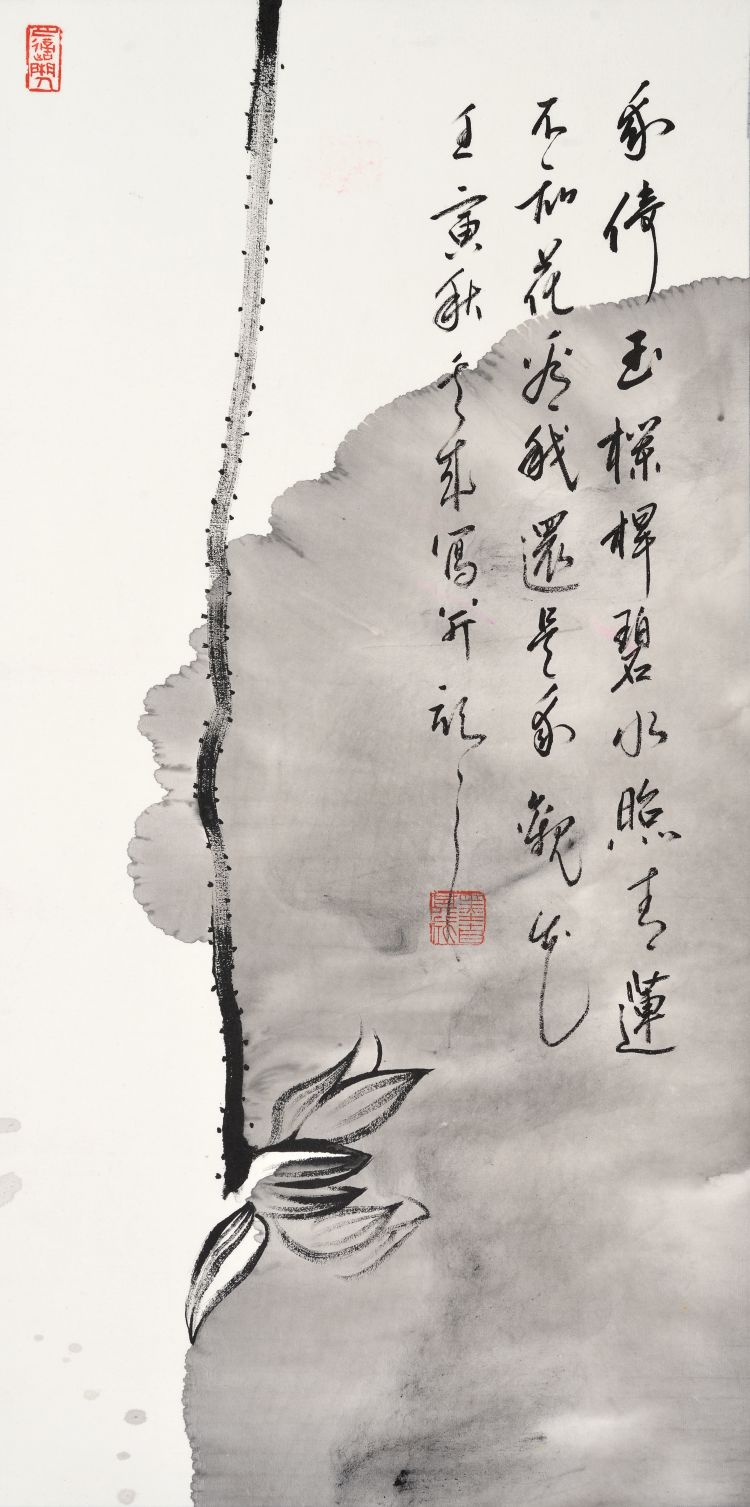 我倚玉欄桿碧水照青蓮
不知花看我還是我觀花
壬寅秋 成寫并